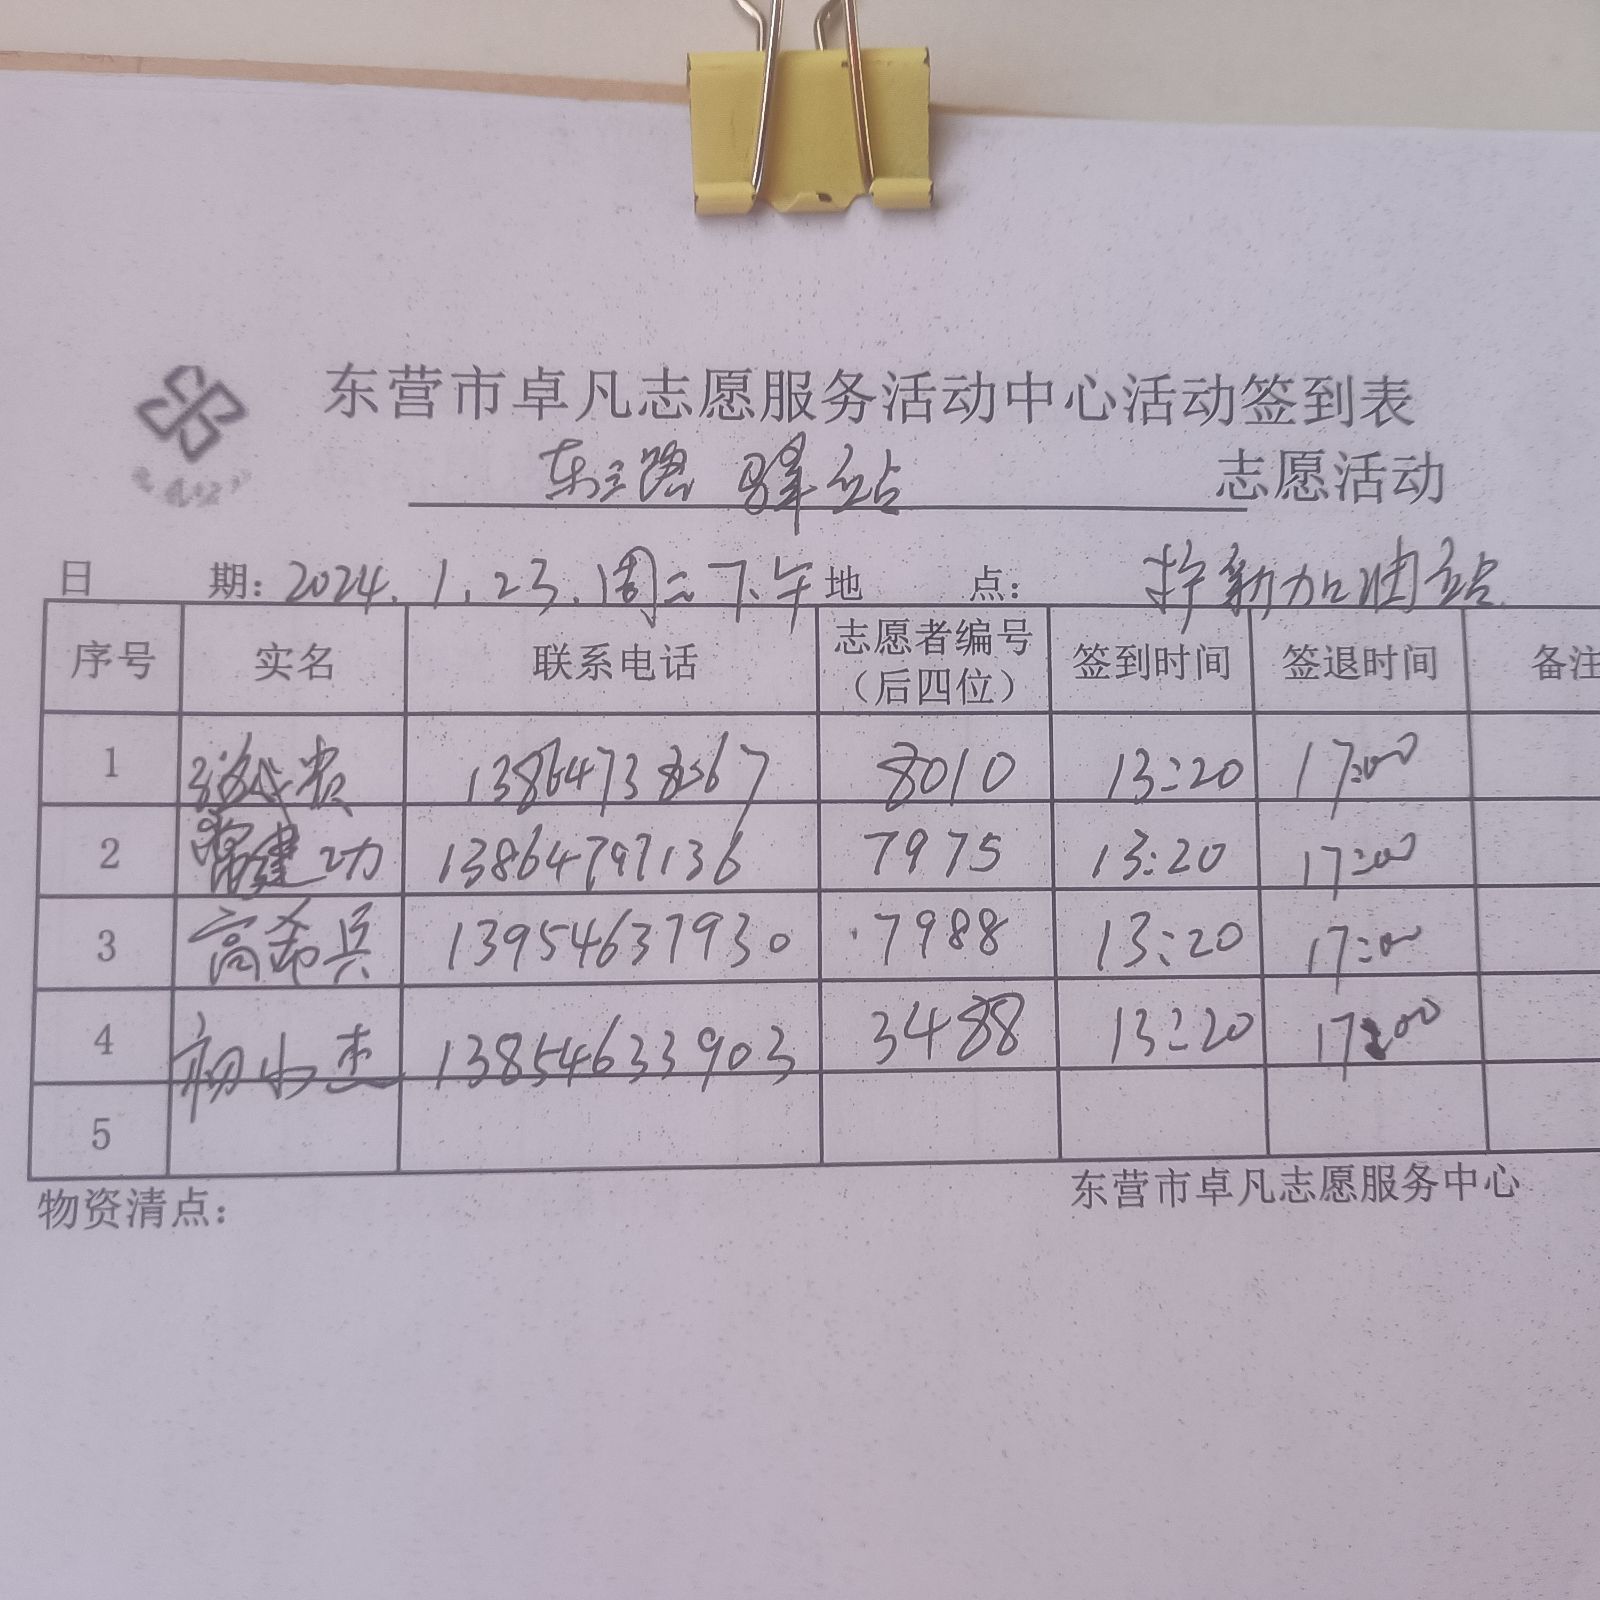 东营市卓凡志愿服务活动中心活动签到表
东三路 驿站 志愿活动
日 期: 2024.1.23.周二下午 地 点: 新加油站
序号 实名 联系电话 志愿者编号(后四位) 签到时间 签退时间 备注
1 8010 13:20 17:00
2 常建功 13864797136 7975 13:20 17:00
3 高希兵 13954637930 7988 13:20 17:00
4 初小杰 13854633903 3488 13:20 17:00
5
物资清点: 东营市卓凡志愿服务中心